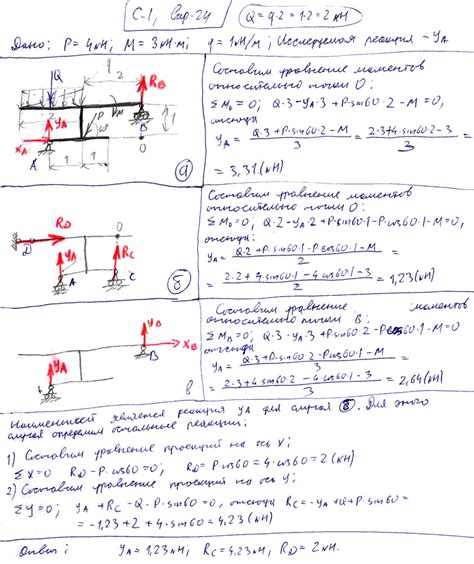 С-1, Вар-24
Q = q·2 = 1·2 = 2 кН
Дано: P = 4 кН; M = 3 кН·м; q = 1 кН/м; Исследуемая реакция - YA
2
Q
RB
P
M
60°
YA
XA
A
B
O
1
1
1
а
Составим уравнение моментов
относительно точки О:
ΣM0=0; Q·3-YA·3+P·sin60·2-M=0,
откуда
YA = (Q·3+P·sin60·2-M)/3 = (2·3+4·sin60·2-3)/3 =
= 3,31 (кН)
RD
D
O
YA
RC
A
C
б
Составим уравнение моментов
относительно точки О:
ΣM0=0; Q·2-YA·2+P·sin60·1-P·cos60·1-M=0,
откуда:
YA = (Q·2+P·sin60·1-P·cos60·1-M)/2 =
= (2·2+4·sin60·1-4·cos60·1-3)/2 = 1,23(кН)
YB
XB
B
YA
в
Составим уравнение моментов
относительно точки В:
ΣMB=0; Q·3-YA·3+P·sin60·2-P·cos60·1-M=0
откуда
YA = (Q·3+P·sin60·2-P·cos60·1-M)/3 =
= (2·3+4·sin60·2-4·cos60·1-3)/3 = 2,64(кН)
Наименьшей является реакция YA для случая. Для этого
случая определим остальные реакции:
1) Составим уравнение проекций на ось X;
ΣX=0 RD-P·cos60=0; RD=P·cos60=4·cos60=2(кН)
2) Составим уравнение проекций на ось Y;
ΣY=0; YA+RC-Q-P·sin60=0, откуда RC=-YA+Q+P·sin60=
= -1,23+2+4·sin60=4,23(кН)
Ответ: YA=1,23кН; RC=4,23кН; RD=2кН.